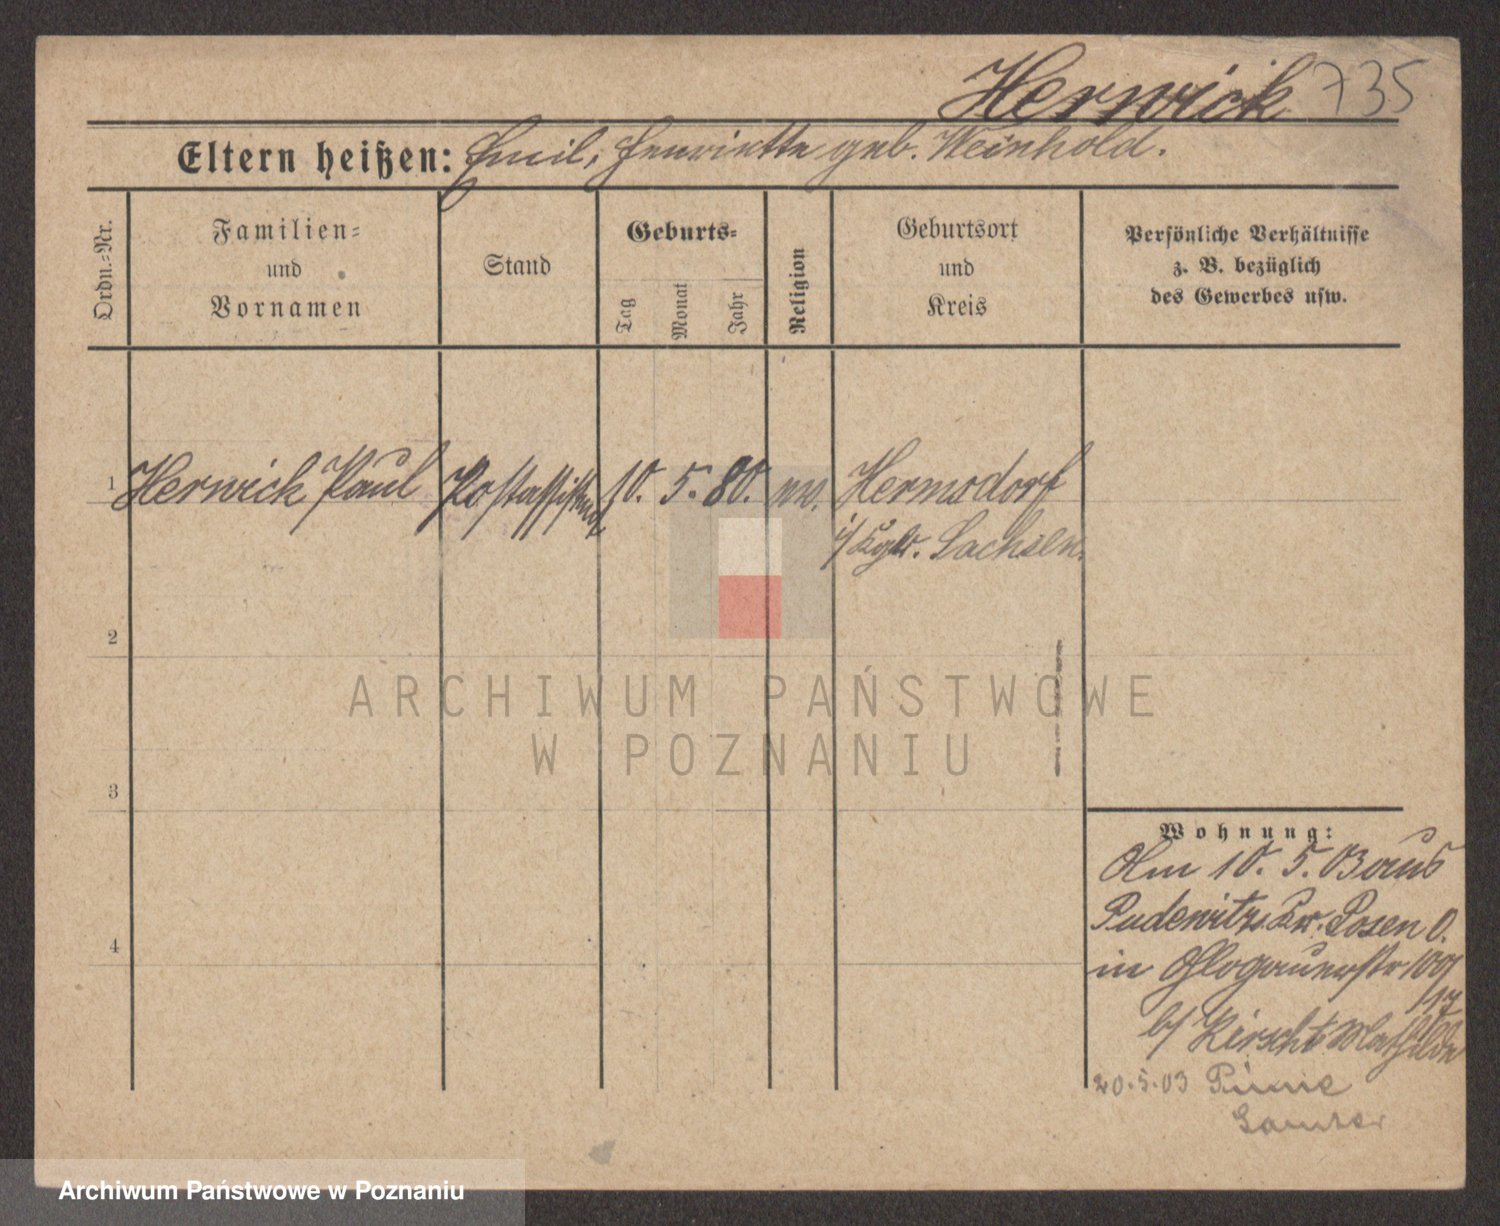 Herwick 735
Eltern heißen: Emil, Henriette geb. Weinhold.
Ordn.-Nr.
Familien-
und
Vornamen
Stand
Geburts-
Tag
Monat
Jahr
Religion
Geburtsort
und
Kreis
Persönliche Verhältnisse
z. B. bezüglich
des Gewerbes usw.
1 Herwick Paul Postassistent 10. 5. 80. ev. Hermsdorf
i/ Kgr. Sachsen.
2
3
4
Wohnung:
Am 10. 5. 03 aus
Pudewitz Kr. Posen O.
in Glogauerstr 100/
b/ Kirscht Mathilde
20.5.03 Pinne
Samter
ARCHIWUM PAŃSTWOWE
W POZNANIU
Archiwum Państwowe w Poznaniu